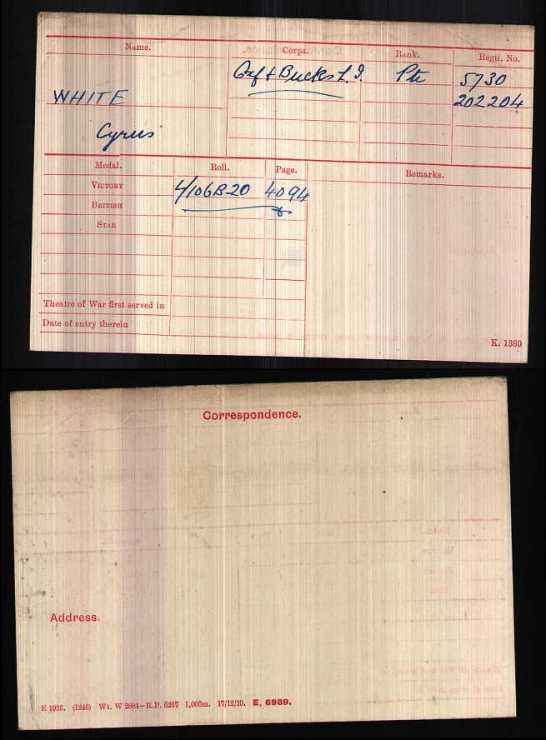 Name. Corps. Rank. Regtl. No.
Oxf & Bucks L.I. Pte 5730
WHITE 202204
Cyrus
Medal. Roll. Page. Remarks.
VICTORY 4/106B20 4094
BRITISH
STAR
Theatre of War first served in
Date of entry therein
K. 1380
Correspondence.
Address.
E 1935. (1248) Wt. W 2884—R.P. 6267 1,000m. 17/12/20. E. 6989.